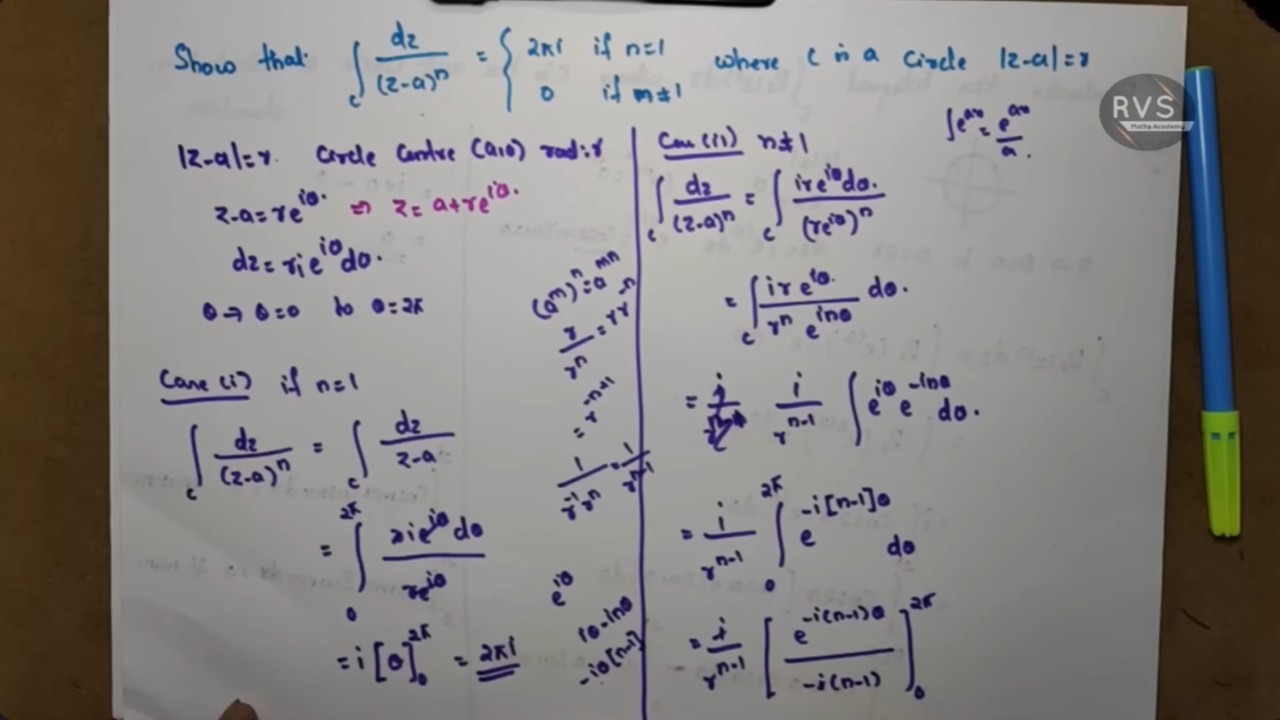 Show that ∫_c dz/(z-a)^n = { 2πi if n=1 where C is a circle |z-a|=r
0 if n≠1
RVS
Maths Academy
|z-a|=r. Circle Centre (a,0) rad:r
z-a=re^{iθ}. ⇒ z=a+re^{iθ}.
dz=rie^{iθ}dθ.
θ→ θ=0 to θ=2π
Case (i) if n=1
∫_c dz/(z-a)^n = ∫_c dz/z-a
= ∫_0^{2π} rie^{iθ}dθ/re^{iθ}
= i[θ]_0^{2π} = 2πi
(a^m)^n=a^{mn}
r/r^n = r r^{-n}
= r^{-n+1}
1/r^{-1}r^n = 1/r^{n-1}
e^{iθ}
iθ-inθ
-iθ[n-1]
Case (ii) n≠1
∫e^{ax} = e^{ax}/a.
∫_c dz/(z-a)^n = ∫_c ire^{iθ}dθ./(re^{iθ})^n
= ∫_c ire^{iθ}/r^n e^{inθ} dθ.
= i/r^{n-1} ∫ e^{iθ} e^{-inθ} dθ.
= i/r^{n-1} ∫_0^{2π} e^{-i[n-1]θ} dθ
= i/r^{n-1} [e^{-i(n-1)θ}/-i(n-1)]_0^{2π}